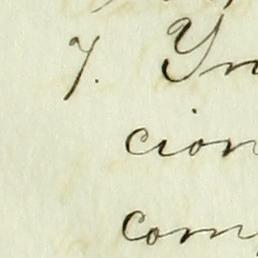 7. Yn
cion
com